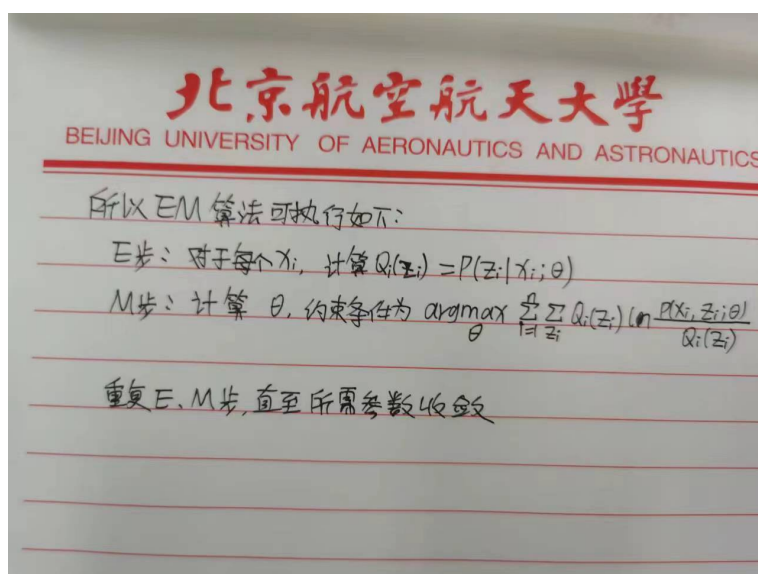 北京航空航天大學
BEIJING UNIVERSITY OF AERONAUTICS AND ASTRONAUTICS
所以EM算法可执行如下：
E步：对于每个xᵢ，计算Qᵢ(zᵢ)=P(zᵢ|xᵢ;θ)
M步：计算θ，约束条件为 argmax_θ ∑_{i=1}^{n} ∑_{zᵢ} Qᵢ(zᵢ) ln P(xᵢ,zᵢ;θ)/Qᵢ(zᵢ)
重复E、M步,直至所需参数收敛